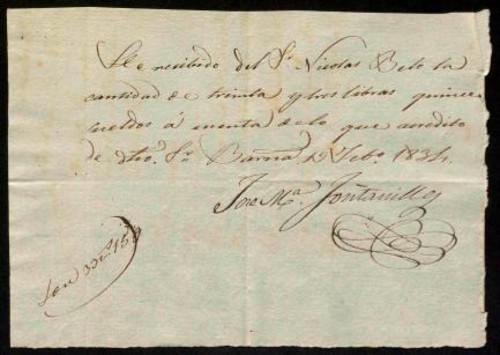 He recibido del Sr Nicolas Beto la
cantidad de trinta y tres libras quince
sueldos á cuenta de lo que acredito
de dho. Sr. Barna 15 Febo. 1834.
Jose Ma. Fontanills
Son 33 15